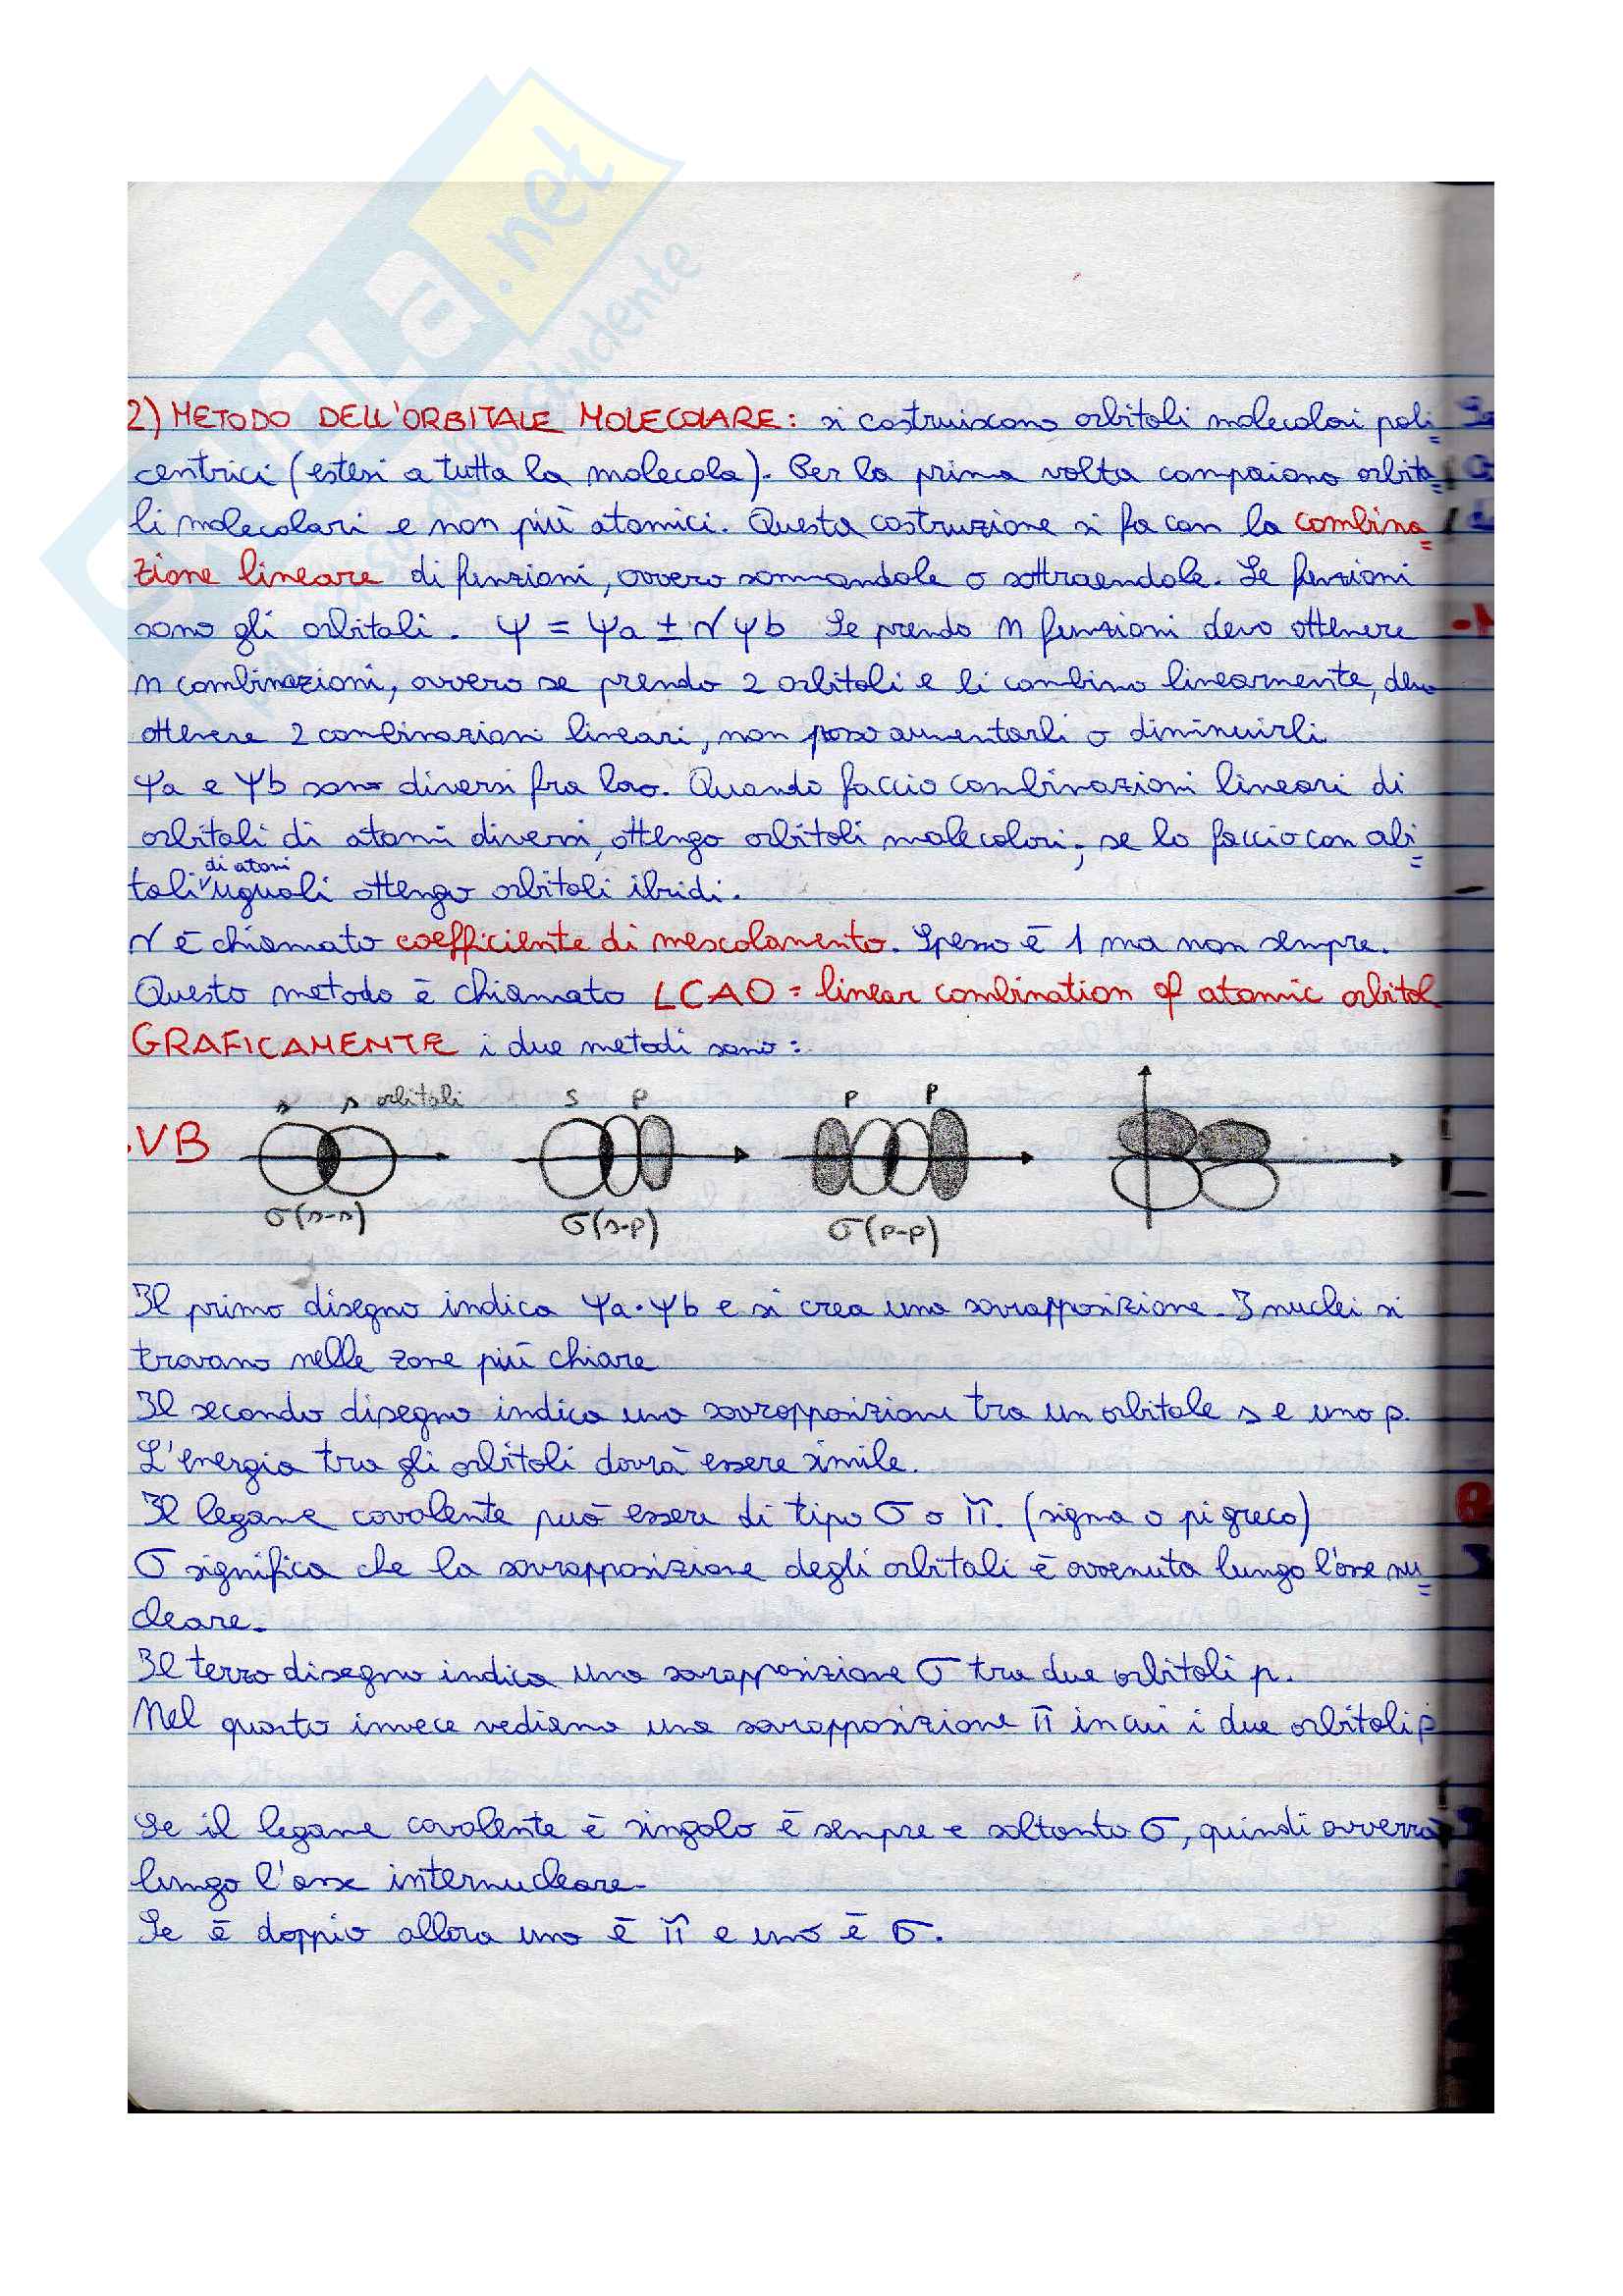 SKUOLA.net
2) METODO DELL'ORBITALE MOLECOLARE: si costruiscono orbitali molecolari poli=
centrici (estesi a tutta la molecola). Per la prima volta compaiono orbita=
li molecolari e non più atomici. Questa costruzione si fa con la combina=
zione lineare di funzioni, ovvero sommandole o sottraendole. Le funzioni
sono gli orbitali. Ψ = Ψa ± γ Ψb Se prendo n funzioni devo ottenere
n combinazioni, ovvero se prendo 2 orbitali e li combino linearmente, devo
ottenere 2 combinazioni lineari, non posso aumentarli o diminuirli
Ψa e Ψb sono diversi fra loro. Quando faccio combinazioni lineari di
orbitali di atomi diversi, ottengo orbitali molecolari; se lo faccio con obi=
di atomi
tali uguali ottengo orbitali ibridi.
γ è chiamato coefficiente di mescolamento. Spesso è 1 ma non sempre.
Questo metodo è chiamato LCAO = linear combination of atomic orbital
GRAFICAMENTE i due metodi sono:
s s orbitali s p p p
VB
σ(s-s) σ(s-p) σ(p-p)
Il primo disegno indica Ψa·Ψb e si crea una sovrapposizione. I nuclei si
trovano nelle zone più chiare
Il secondo disegno indica una sovrapposizione tra un orbitale s e uno p.
L'energia tra gli orbitali dovrà essere simile.
Il legame covalente può essere di tipo σ o π. (sigma o pi greco)
σ significa che la sovrapposizione degli orbitali è avvenuta lungo l'asse nu=
cleare.
Il terzo disegno indica una sovrapposizione σ tra due orbitali p.
Nel quarto invece vediamo una sovrapposizione π in cui i due orbitali p
Se il legame covalente è singolo è sempre e soltanto σ, quindi avverrà
lungo l'asse internucleare.
Se è doppio allora uno è π e uno è σ.